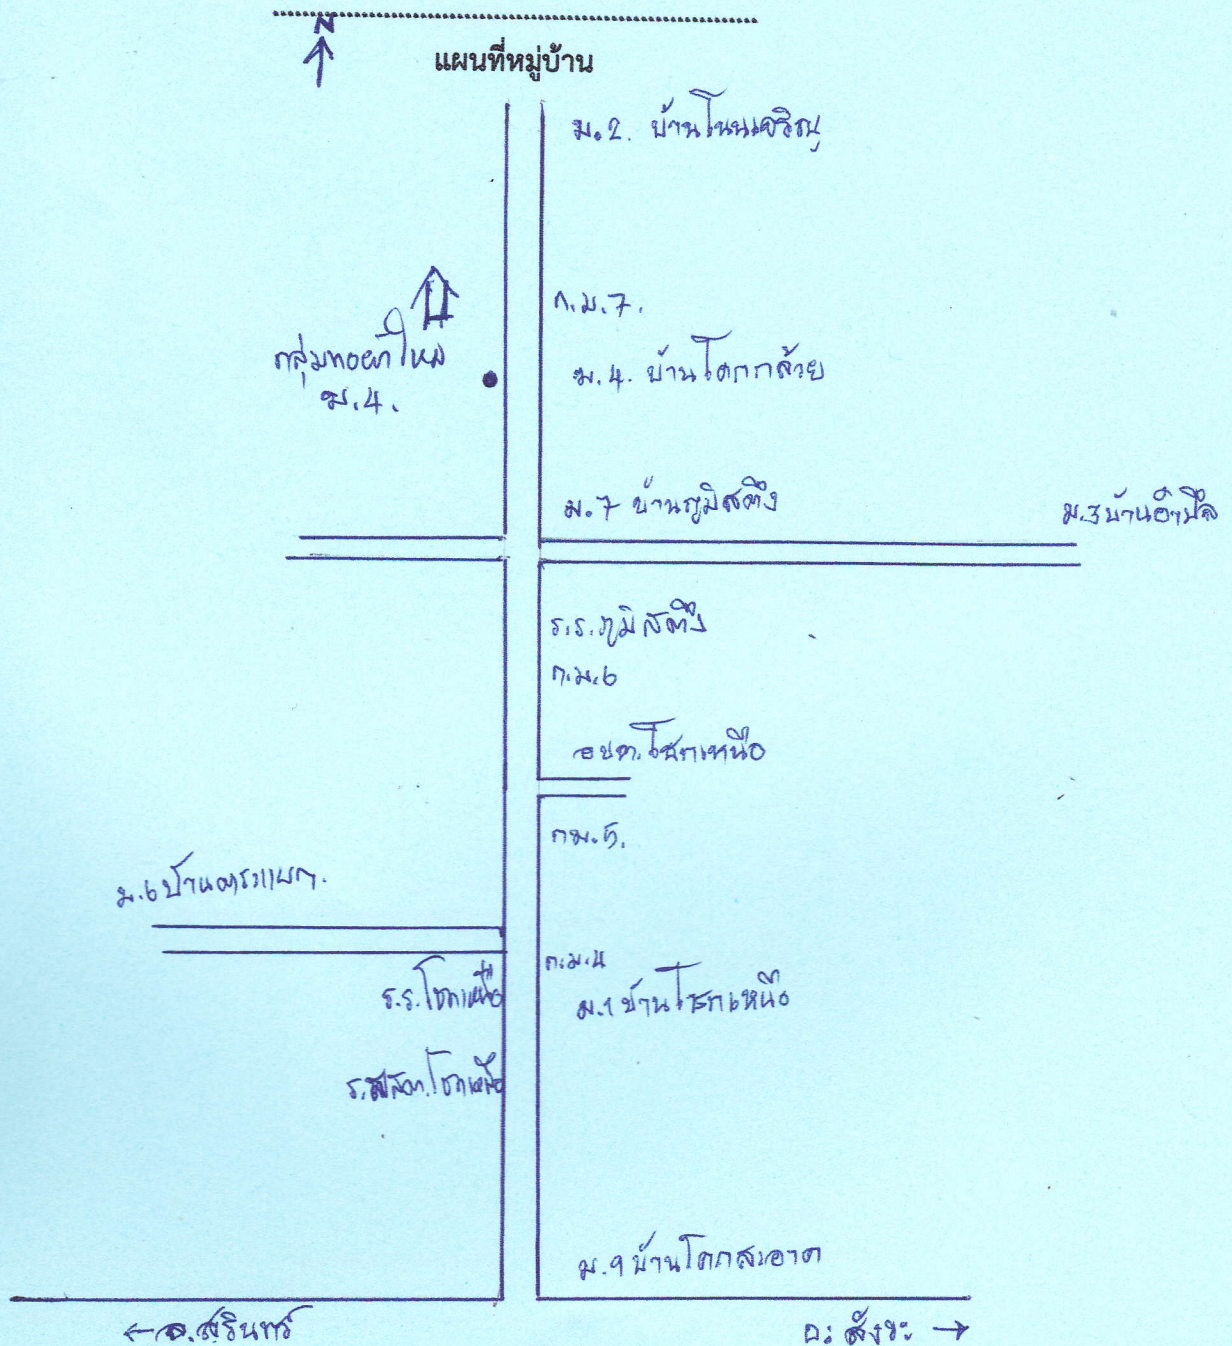 N
แผนที่หมู่บ้าน
ม.2. บ้านโนนเจริญ
ก.ม.7.
กลุ่มทอผ้าไหม
ม.4.
ม.4. บ้านโคกกล้วย
ม.7 บ้านภูมิสตึง
ม.3 บ้านอำปึล
ร.ร.ภูมิสตึง
ก.ม.6
อบต.โชกเหนือ
กม.5.
ม.6 บ้านตระแบก.
ก.ม.4
ร.ร.โชกเหนือ
ม.1 บ้านโชกเหนือ
โชกเหนือ
ม.9 บ้านโคกสะอาด
← อ.สุรินทร์
อ.สังขะ →